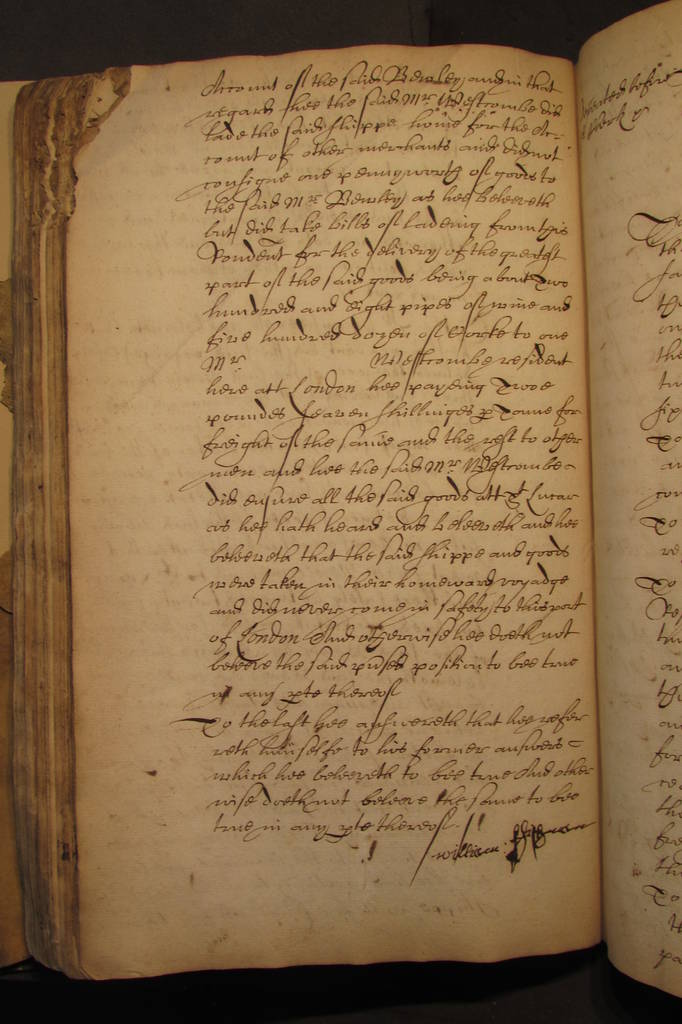 Account of the said Bewley, and in that
regard hee the said Mr Westcombe did
lade the said shippe home for the Ac-
count of other merchants and did not
consigne one pennyworth of goods to
the said Mr Bewley, as hee beleeveth
but did take bills of ladeing from this
Rondent for the delivery of the greatest
part of the said goods being about two
hundred and eight pipes of wine and
five hundred dozen of Corke to one
Mr Westcombe resident
here att London hee payeing twoe
poundes seaven shillinges p Tonne for
freight of the same and the rest to other
men and hee the said Mr Westcombe
did ensure all the said goods att St Lucar
as hee hath heard and beleeveth and hee
beleeveth that the said shippe and goods
were taken in their homeward voyadge
and did never come in safety to this port
of London And otherwise hee doeth not
beleeve the said position to bee true
in any pte thereof
To the last hee answereth that hee refer
reth himselfe to his former answers
which hee beleeveth to bee true And other
wise doeth not beleeve the same to bee
true in any pte thereof.
william